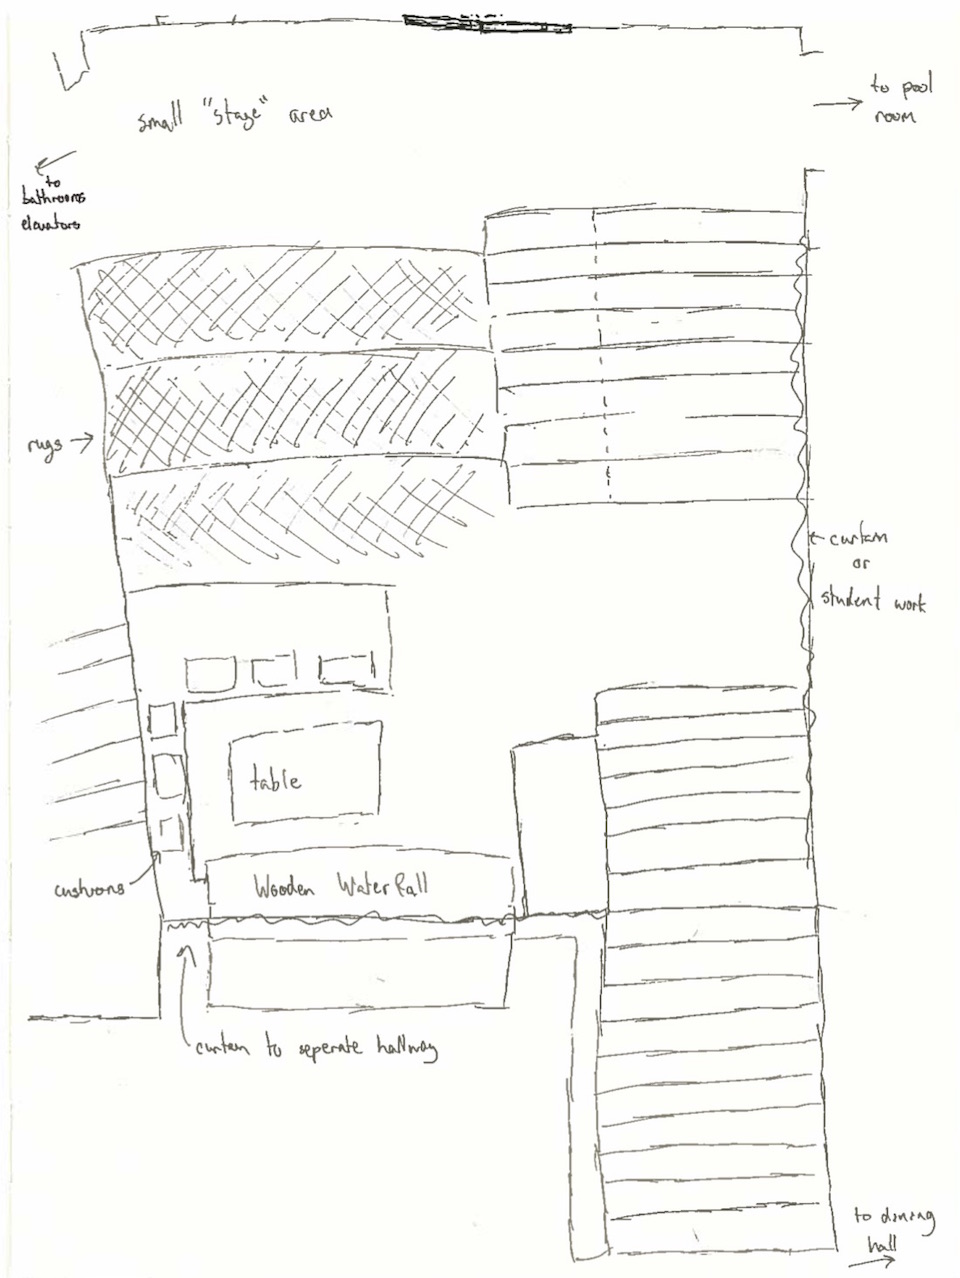 small "stage" area
to pool
room
to
bathrooms
elevators
rugs
curtain
or
student work
table
cushions
Wooden Waterfall
curtain to seperate hallway
to dining
hall